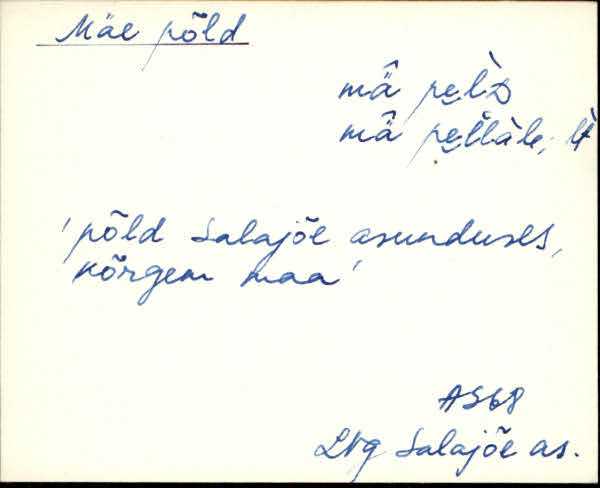 Mäe põld
mä̂ pe̮l̀D
mä̂ pe̮l̆làle, lt
'põld Salajõe asunduses,
kõrgem maa'
AS68
LNg Salajõe as.